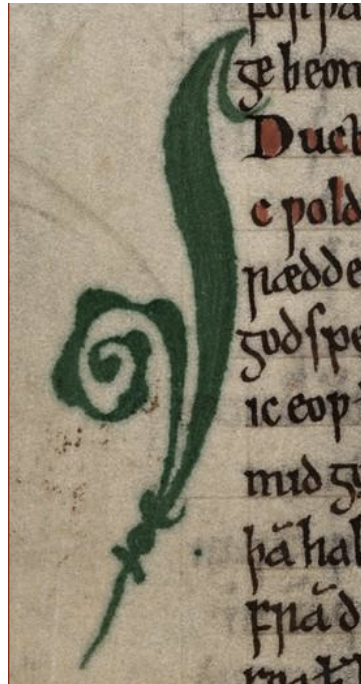 ge beon
Duct
Ic ƿold
rædde
godspe
ic eoƿ
mid g
þā hal
frā d